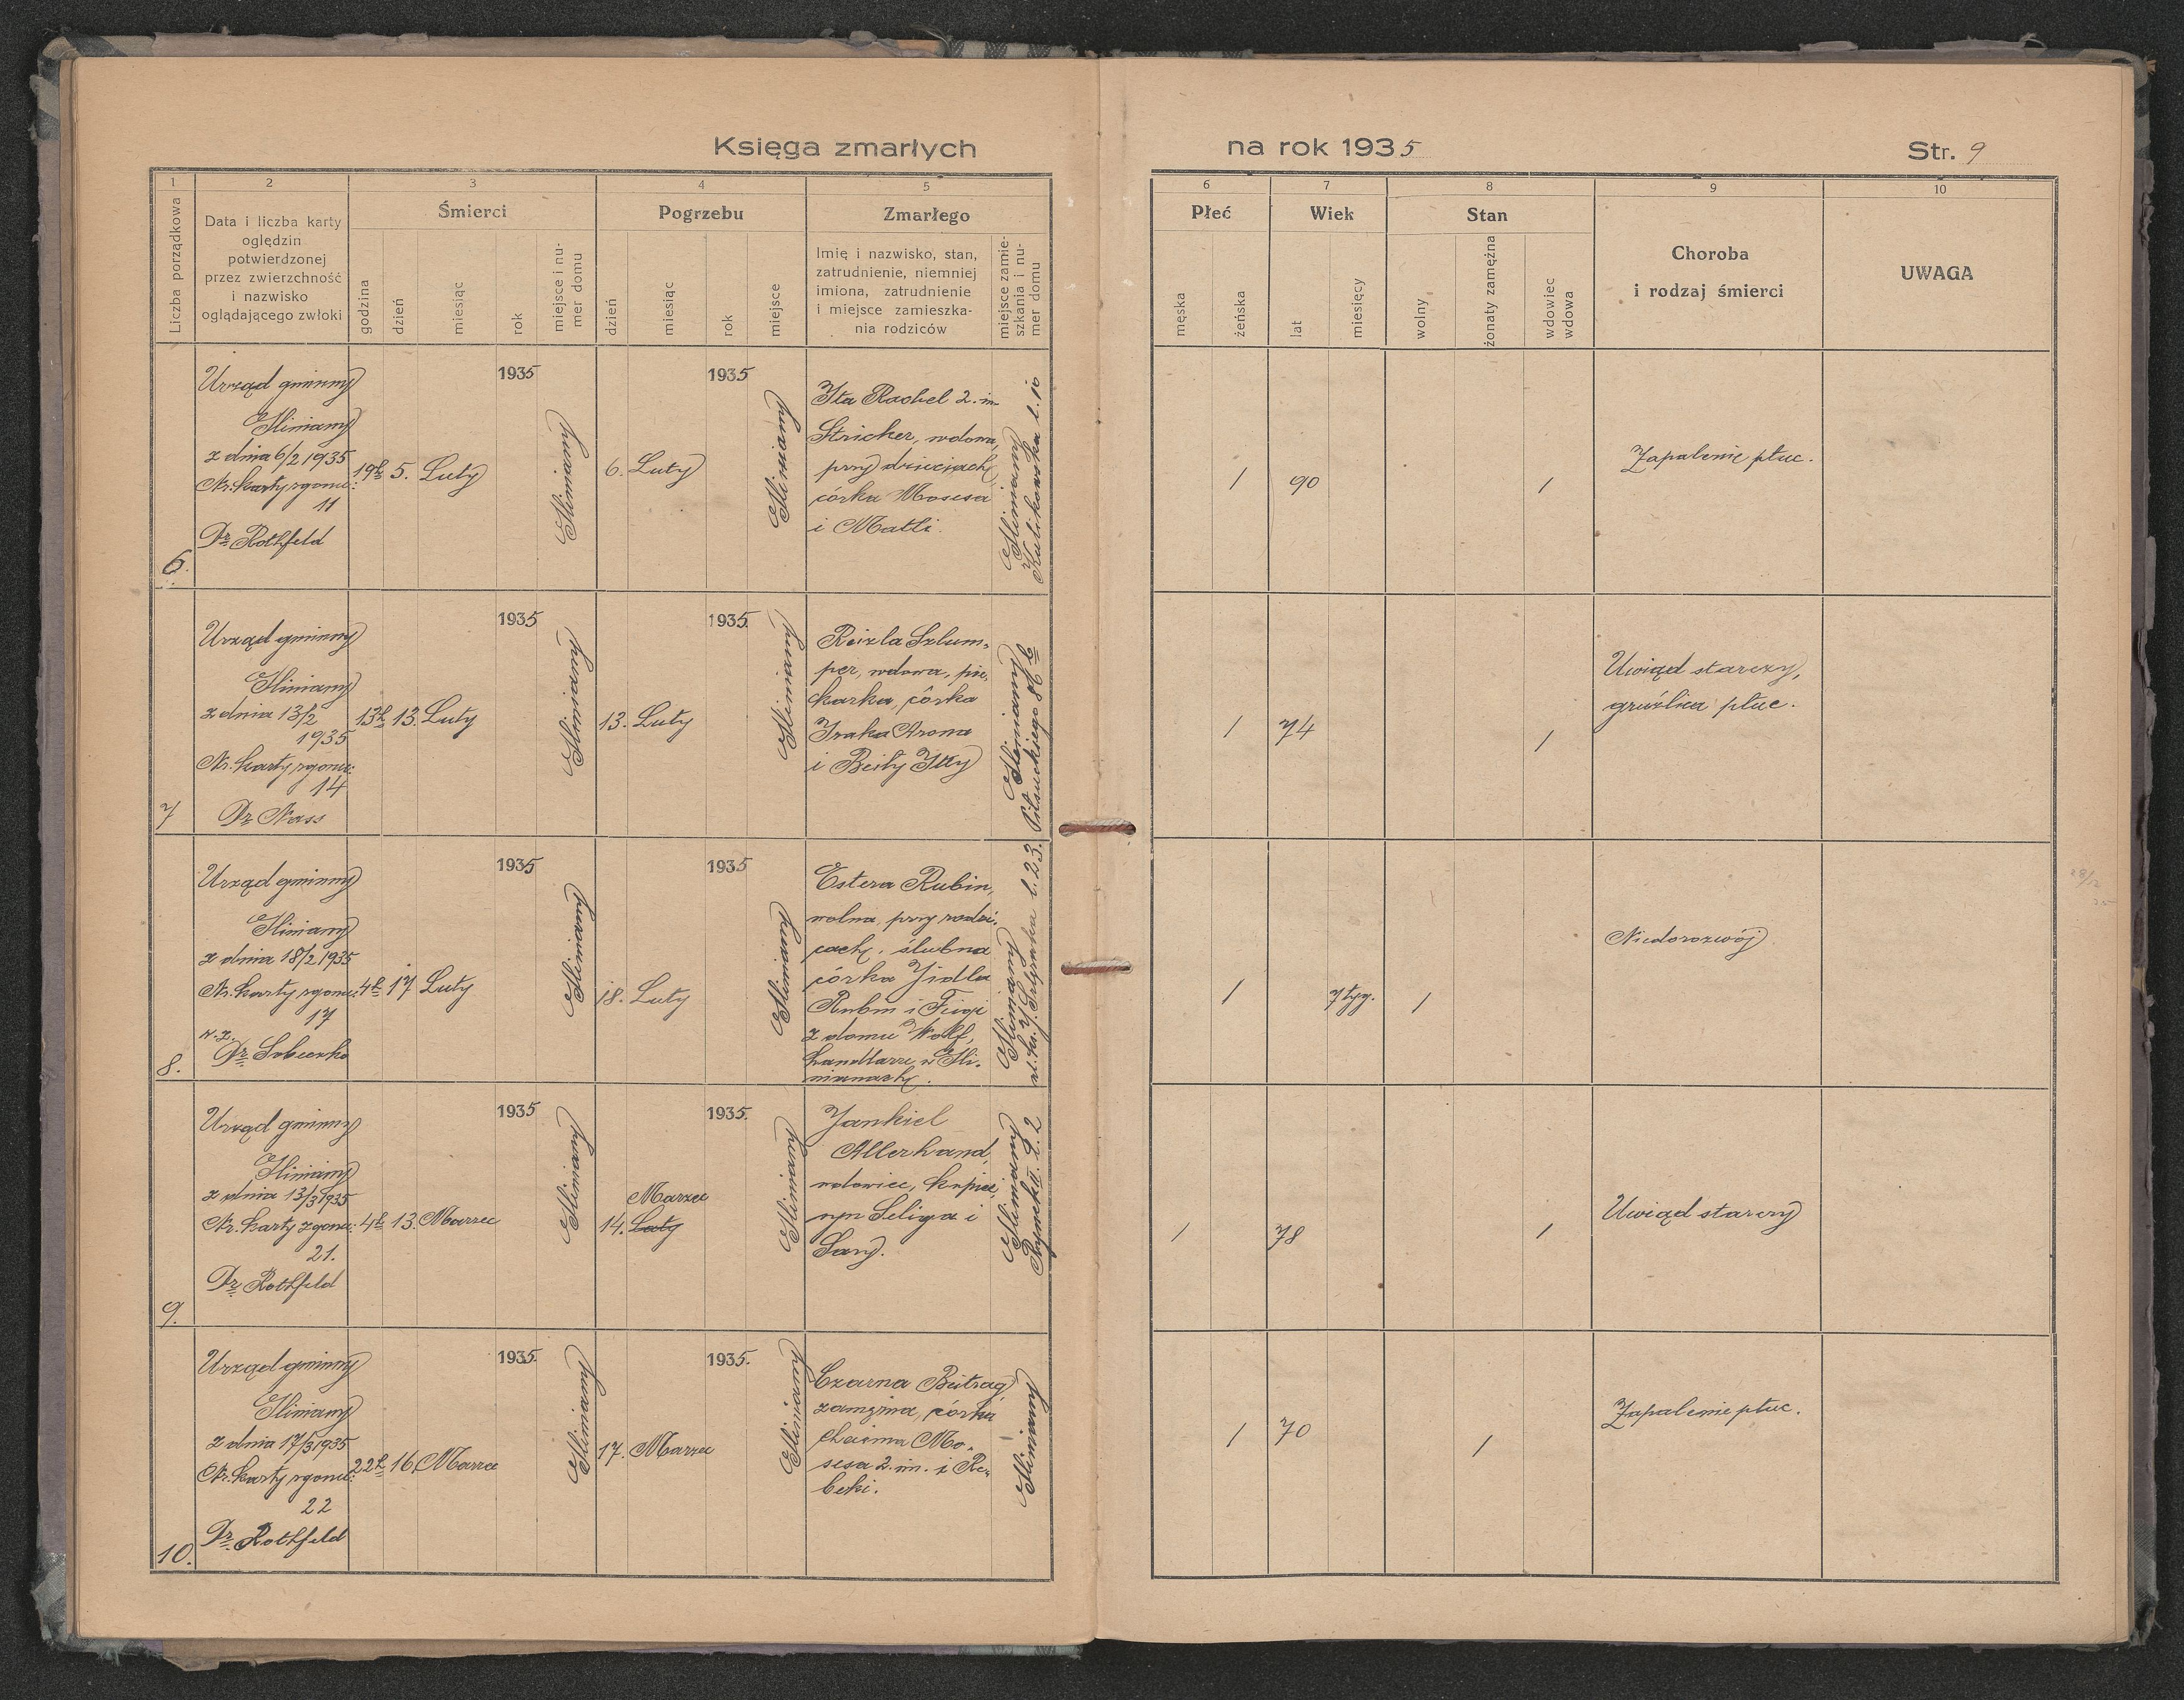 Księga zmarłych
na rok 1935
Str. 9
1
2
3
4
5
6
7
8
9
10
Liczba porządkowa
Data i liczba karty
oględzin
potwierdzonej
przez zwierzchność
i nazwisko
oglądającego zwłoki
Śmierci
godzina
dzień
miesiąc
rok
miejsce i nu-
mer domu
Pogrzebu
dzień
miesiąc
rok
miejsce
Zmarłego
Imię i nazwisko, stan,
zatrudnienie, niemniej
imiona, zatrudnienie
i miejsce zamieszka-
nia rodziców
miejsce zamie-
szkania i nu-
mer domu
Płeć
męska
żeńska
Wiek
lat
miesięcy
Stan
wolny
żonaty zamężna
wdowiec
wdowa
Choroba
i rodzaj śmierci
UWAGA
6.
Urząd gminny
Gliniany
z dnia 6/2 1935
Nr. karty zgonu:
11
Dr Rothfeld
19h
5.
Luty
1935
Gliniany
6.
Luty
1935
Gliniany
Ita Rachel 2. im
Stricker, wdowa,
przy dzieciach,
córka Mosesa
i Matli.
Gliniany
Kulikowska l. 10
1
90
1
Zapalenie płuc.
7
Urząd gminny
Gliniany
z dnia 13/2
1935
Nr. karty zgonu:
14
Dr Nass
13h
13.
Luty
1935
Gliniany
13.
Luty
1935.
Gliniany
Reizla Szlum-
per, wdowa, pie-
karka, córka
Izaka Arona
i Beily Itty
Gliniany
Piłsudskiego 86 b
1
74
1
Uwiąd starczy,
gruźlica płuc.
8.
Urząd gminny
Gliniany
z dnia 18/2 1935
Nr. karty zgonu:
17
w. z.
Dr.
4h
17
Luty
1935
Gliniany
18.
Luty
1935
Gliniany
Estera Rubin,
wolna, przy rodzi-
cach, ślubna
córka Jidla
Rubin i Feigi
z domu Wolf,
handlarze w Gli-
nianach.
Gliniany
l. 23.
1
7 tyg.
1
Niedorozwój
9.
Urząd gminny
Gliniany
z dnia 13/3 1935
Nr. karty zgonu:
21.
Dr. Rothfeld
4h
13.
Marzec
1935
Gliniany
Marzec
14. Luty
1935.
Gliniany
Jankiel
Allerhand,
wdowiec, kupiec,
syn Seliga i
Sary.
Gliniany
Rynek II. l. 2
1
78
1
Uwiąd starczy
10.
Urząd gminny
Gliniany
z dnia 17/3 1935
Nr. karty zgonu:
22
Dr. Rothfeld
22h
16.
Marzec
1935.
Gliniany
17.
Marzec
1935.
Gliniany
Czarna Beitrag,
zamężna, córka
Chaima Mo-
sesa 2. im. i Re-
beki.
Gliniany
1
70
1
Zapalenie płuc.